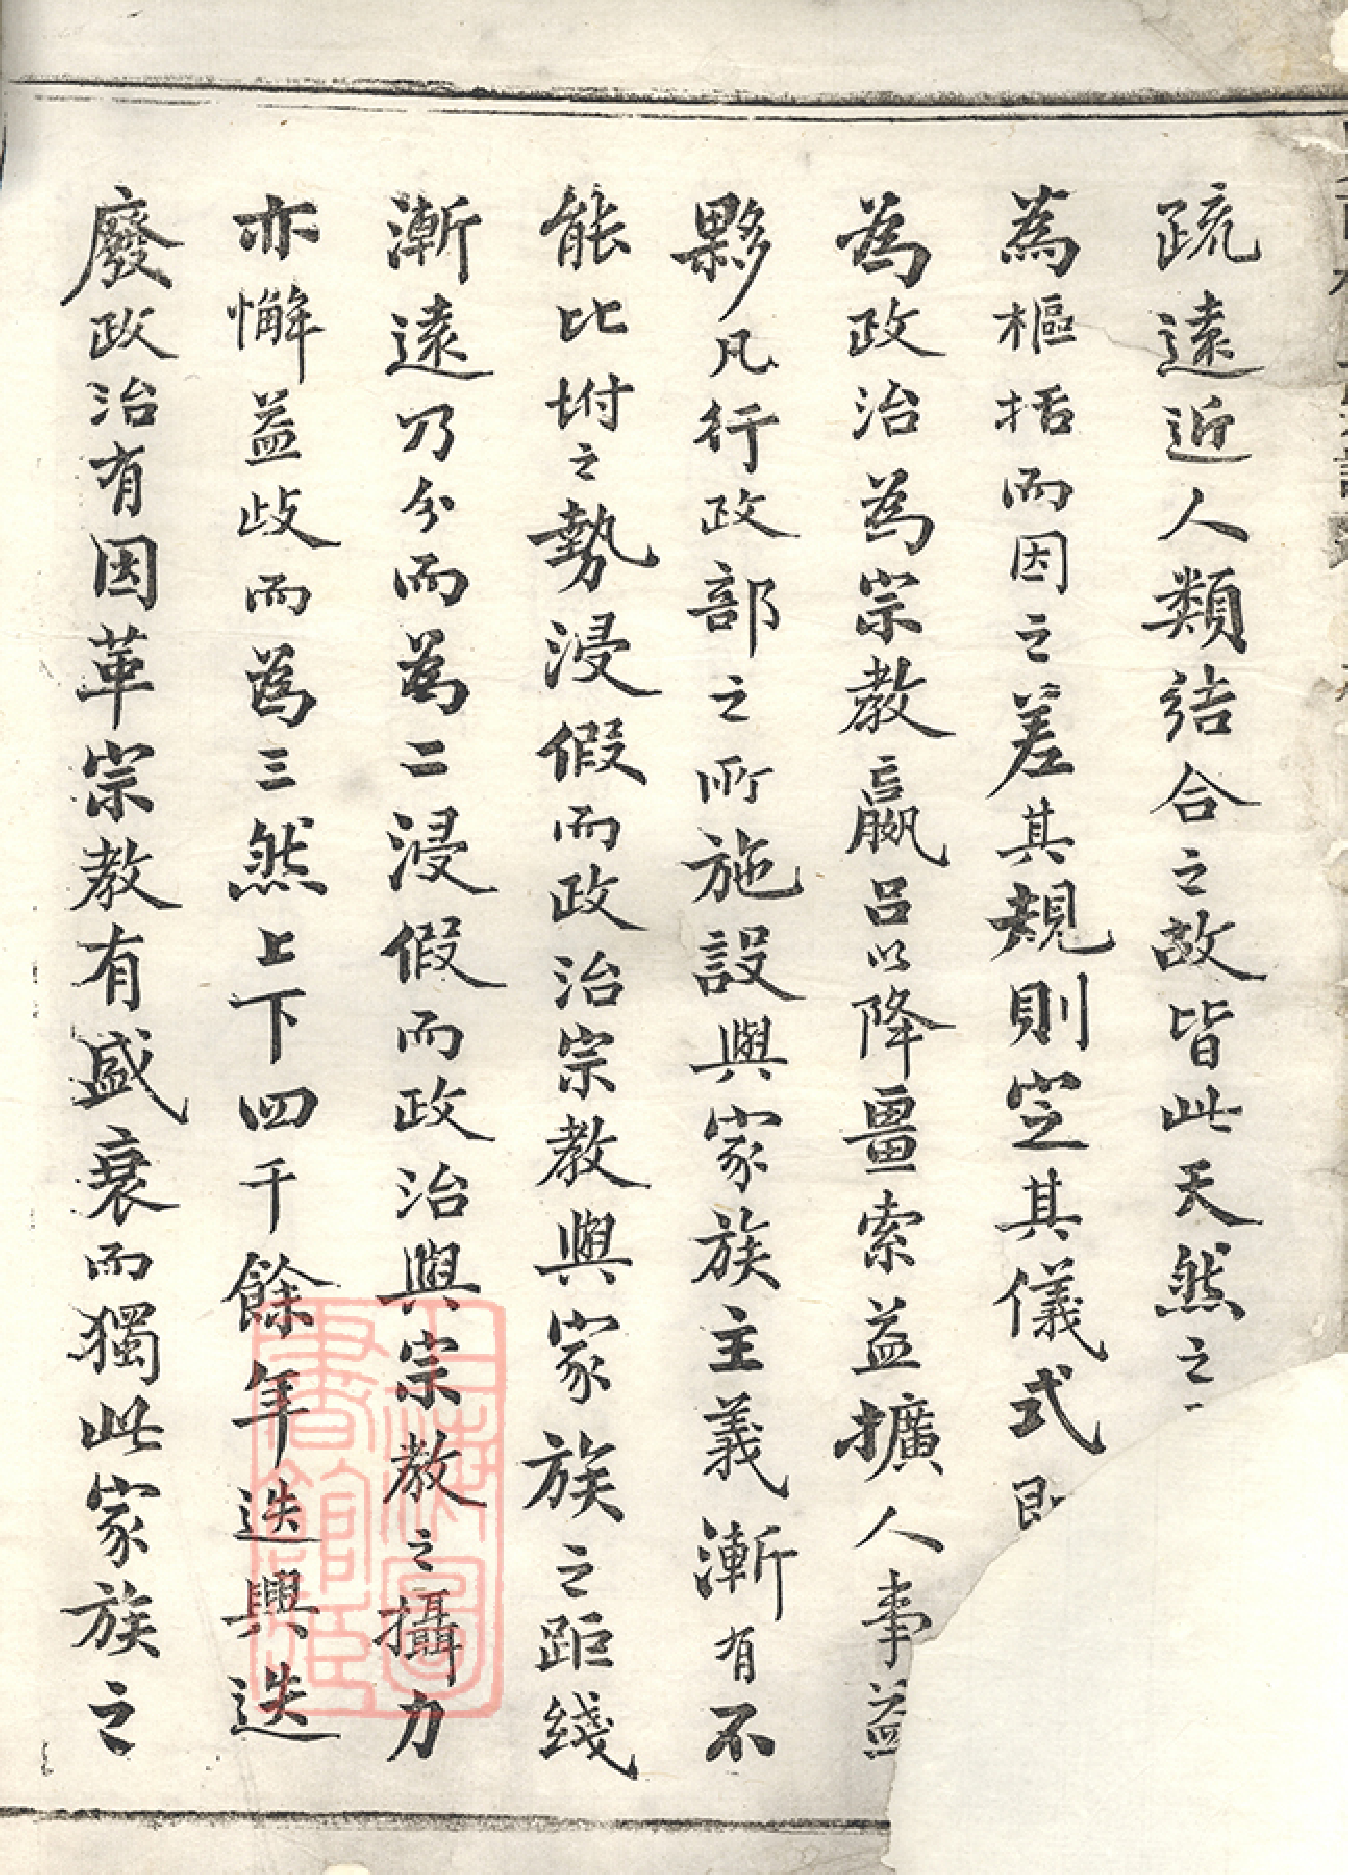 疏遠近人類結合之故皆此天然之
為樞括而因之差其規則定其儀式即
為政治為宗教嬴呂以降畺索益擴人事益
夥凡行政部之所施設與家族主義漸有不
能比坿之勢浸假而政治宗教與家族之距綫
漸遠乃分而為二浸假而政治與宗教之攝力
亦懈益歧而為三然上下四千餘年迭興迭
廢政治有因革宗教有盛衰而獨此家族之
上海圖書館藏